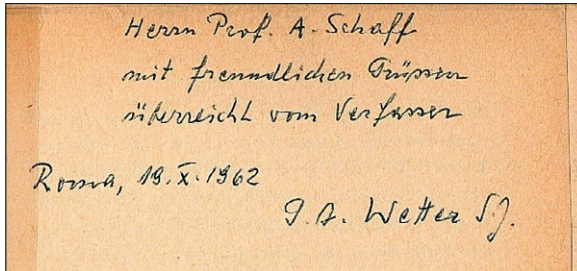 Herrn Prof. A. Schaff
mit freundlichen Grüssen
überreicht vom Verfasser
Roma, 19.X.1962
G.A. Wetter S.J.